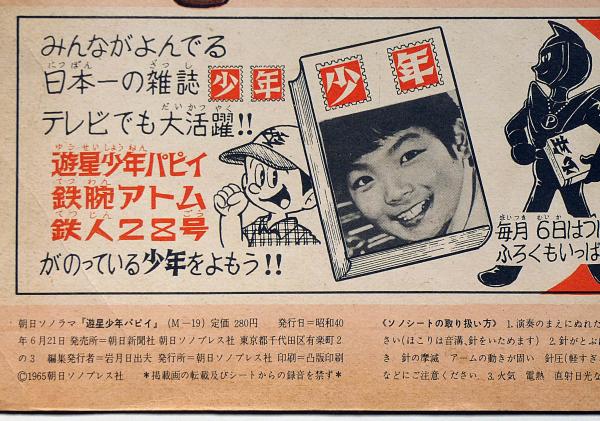 みんながよんでる
にっぽん ざっし
日本一の雑誌 少年
だいかつやく
テレビでも大活躍!!
ゆうせいしょうねん
遊星少年パピイ
てつわん
鉄腕アトム
てつじん ごう
鉄人28号
がのっている少年をよもう!!
少年
少年
P
まいつき むいか
毎月6日はつ
ふろくもいっぱ
朝日ソノラマ『遊星少年パピイ』(M-19) 定価 280円 発行日=昭和40
年6月21日 発売所=朝日新聞社 東京都千代田区有楽町2
の3 編集発行者=岩月日出夫 発行所=朝日ソノプレス社 印刷=凸版印刷
©1965朝日ソノプレス社 *掲載画の転載及びシートからの録音を禁ず*
《ソノシートの取り扱い方》 1.演奏のまえにぬれた
さい(ほこりは音溝、針をいためます) 2.針がとぶ
き 針の摩滅 アームの動きが固い 針圧(軽すぎ
などにご注意ください 3.火気 電熱 直射日光な